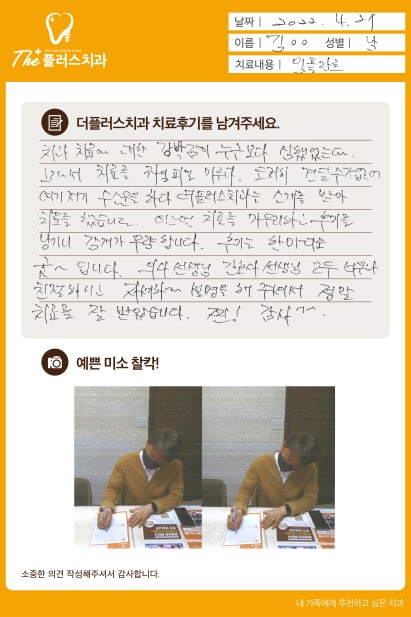 THE PLUS DENTAL CLINIC
The+ 플러스치과
날짜 | 2022. 4. 21
이름 | 김 o o 성별 | 남
치료내용 | 임플란트
더플러스치과 치료후기를 남겨주세요.
치과 치료에 대한 강박감이 누구보다 심했었는데.
그래서 치료를 차일피일 미루다. 도저히 견딜수가없어
여기저기 수소문을 하다 더플러스치과는 소개를 받아
치료를 했습니다. 어느덧 치료를 마무리하고 후기를
남기니 감개가 무량합니다. 후기는 한마디로
굳~ 입니다. 의사 선생님 간호사 선생님 모두 너무나
친절하시고 자세하게 설명을 해 주셔서 정말
치료를 잘 받았습니다. 감사~
예쁜 미소 찰칵!
소중한 의견 작성해주셔서 감사합니다.
내 가족에게 추천하고 싶은 치과